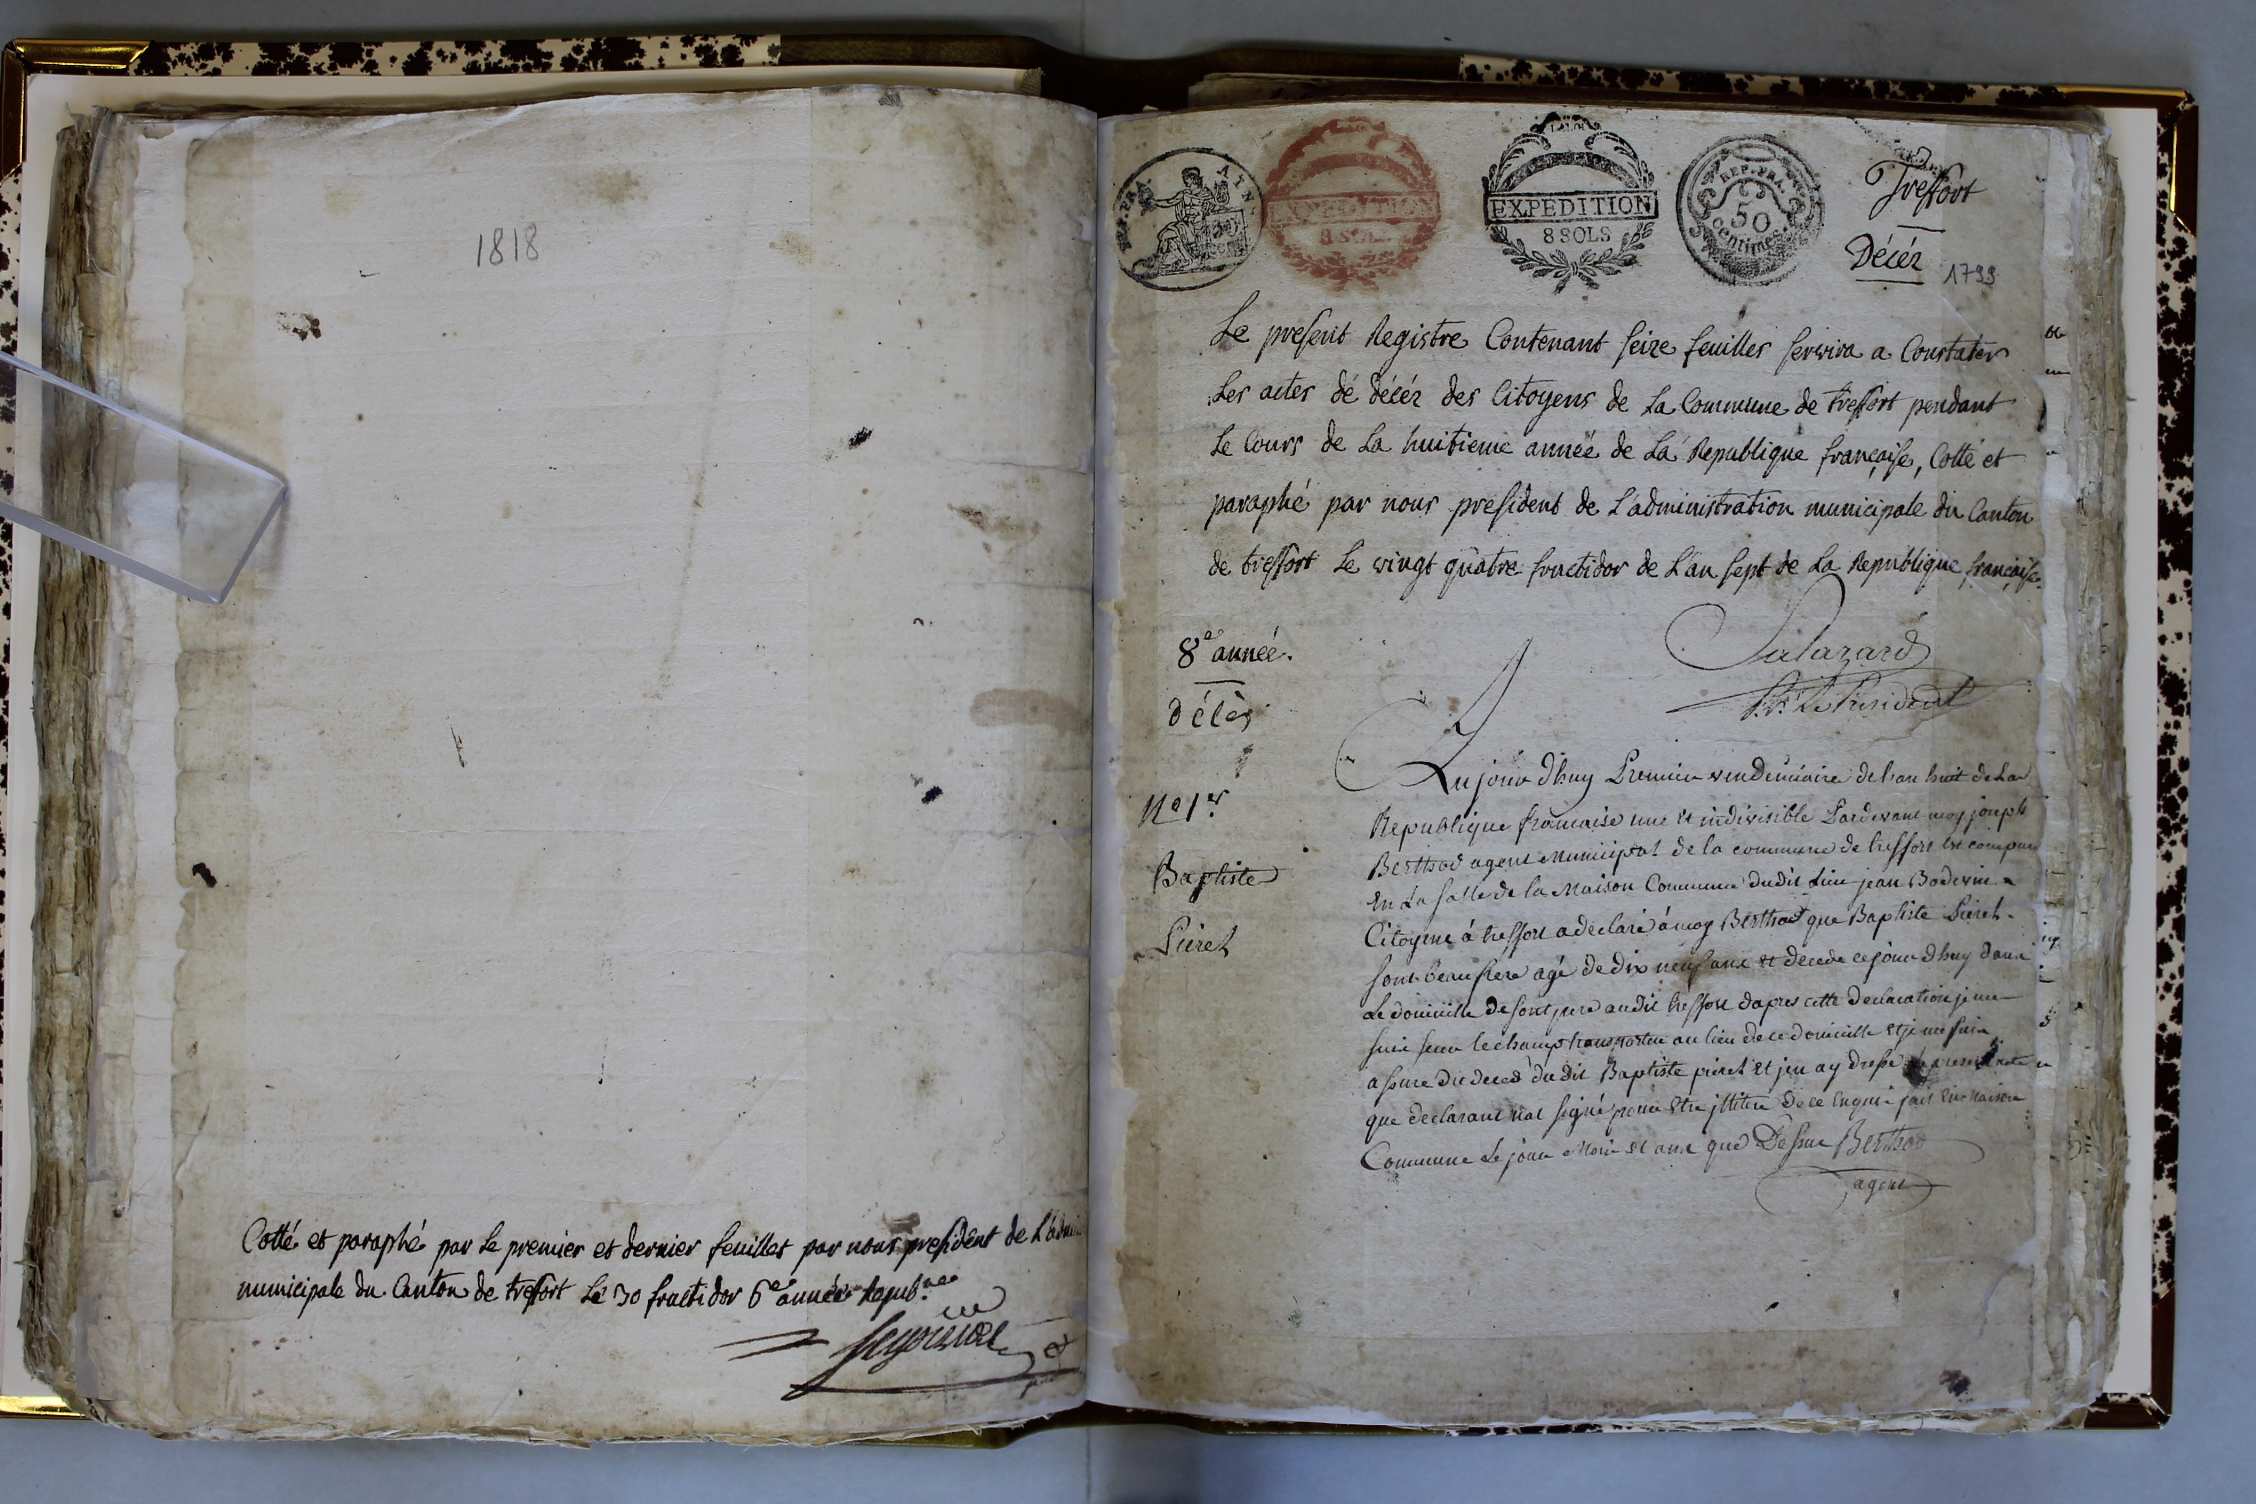 1818
Cotté et paraphé par le premier et dernier feuillet par nous president de L'admi
municipale du Canton de treffort Le 30 fructidor 6e année Repub.nee
REP. FRA. AIN.
EXPEDITION
8 SOLS
LA LOI
EXPEDITION
8 SOLS
REP. FRA.
50
centimes.
Treffort
Décéz
1799
Le present Registre Contenant seize feuilles servira a Constater
Les actes dé décéz des Citoyens de La Commune de treffort pendant
Le Cours de La huitieme année de La Republique française, Cotté et
paraphé par nous president de L'administration municipale du Canton
de treffort Le vingt quatre fructidor de L'an sept de La Republique française.
Salazard
Le President
8e année.
décès
No 1er
Baptiste
Piret
Aujour dhuy Premier vendemiaire de l'an huit de La
Republique francaise une et indivisible Pardevant moy joseph
Berthod agent Municipal de la commune de treffort est comparu
En La salle de la Maison Commune dudit Lieu jean Bodevin
Citoyen á treffort a déclaré á moy Berthod que Baptiste Piret
sont beaufrere agé de dix neuf ans et decede ce jour dhuy dans
Le domicille de sont pere au dit treffort dapres cette declaration je me
suis sur le champ transporter au lieu de ce domicille et je me suis
assure du deced du dit Baptiste piret et jen ay dressé le present acte
que declarant nat signé pour etre jlliteré de ce Enquis fait En Maison
Commune Le jour Mois et ans que Dessus Berthod
agent